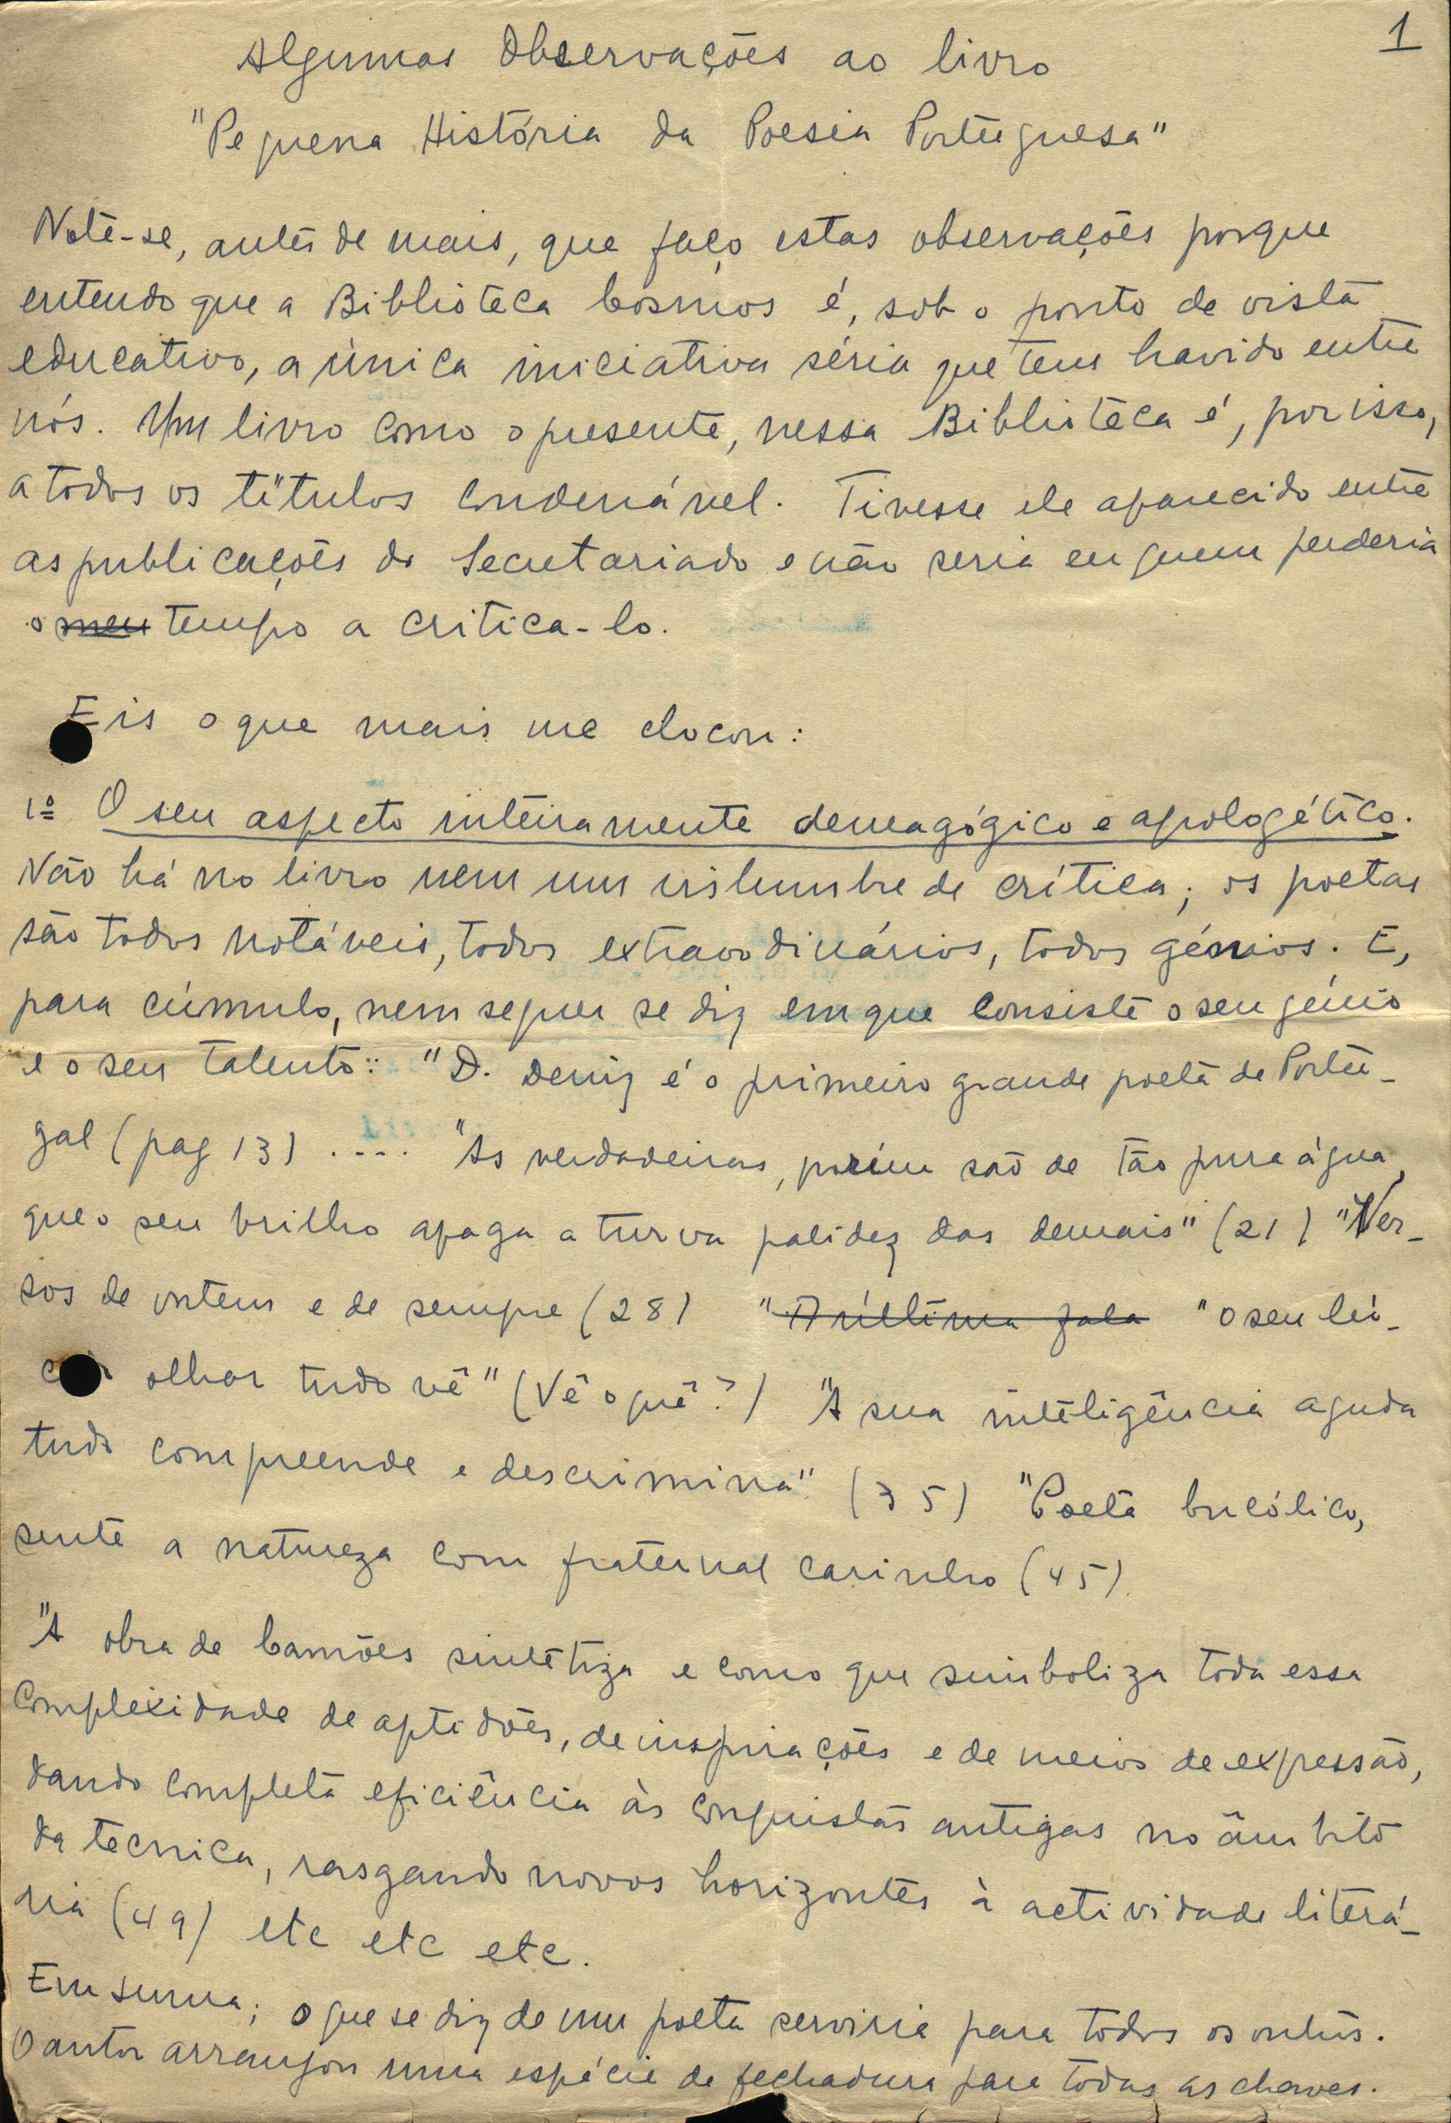 1
Algumas Observações ao livro
"Pequena História da Poesia Portuguesa"
Note-se, antes de mais, que faço estas observações porque
entendo que a Biblioteca Cosmos é, sob o ponto de vista
educativo, a única iniciativa séria que tem havido entre
nós. Um livro como o presente, nessa Biblioteca é, por isso,
a todos os títulos condenável. Tivesse ele aparecido entre
as publicações do Secretariado e não seria eu quem perderia
o meu tempo a critica-lo.
Eis o que mais me chocou:
1º O seu aspecto inteiramente demagógico e apologético.
Não há no livro nem um vislumbre de crítica; os poetas
são todos notáveis, todos extraordinários, todos génios. E,
para cúmulo, nem sequer se diz em que consiste o seu génio
e o seu talento: "D. Deniz é o primeiro grande poeta de Portu-
gal (pag 13) .... "As verdadeiras, porém são de tão pura água,
que o seu brilho apaga a turva palidez das demais" (21) "Ver-
sos de ontem e de sempre (28) "A última fala "o seu lú-
cido olhar tudo vê" (Vê o quê?) "A sua inteligência aguda
tudo compreende e descrimina" (35) "Poeta bucólico,
sente a natureza com fraternal carinho (45)
"A obra de Camões sintetiza e como que simboliza toda essa
complexidade de aptidões, de inspirações e de meios de expressão,
dando completa eficiência às conquistas antigas no âmbito
da tecnica, rasgando novos horizontes à actividade literá-
ria (49) etc etc etc.
Em suma; o que se diz de um poeta serviria para todos os outros.
O autor arranjou uma espécie de fechadura para todas as chaves.